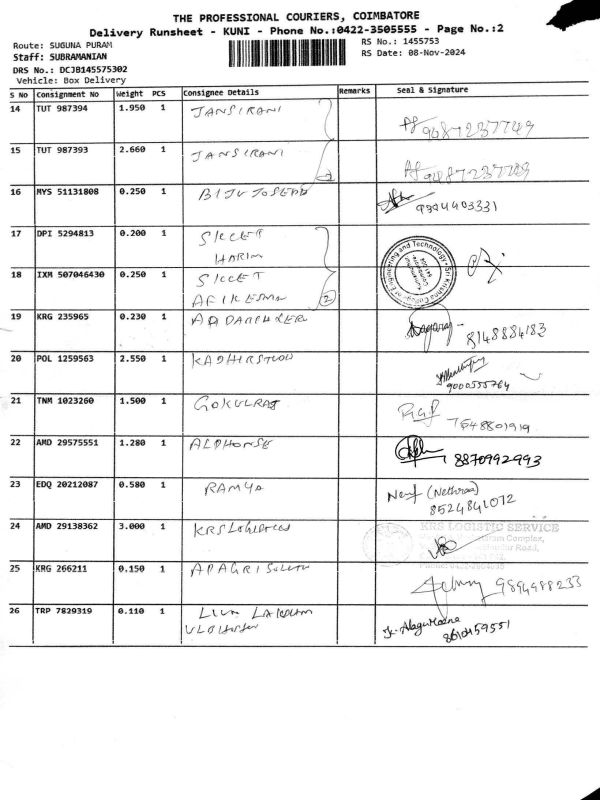 THE PROFESSIONAL COURIERS, COIMBATORE
Delivery Runsheet - KUNI - Phone No.:0422-3505555 - Page No.:2
Route: SUGUNA PURAM
RS No.: 1455753
Staff: SUBRAMANIAN
RS Date: 08-Nov-2024
DRS No.: DCJB145575302
Vehicle: Box Delivery
S No Consignment No Weight PCS Consignee Details Remarks Seal & Signature
14 TUT 987394 1.950 1 JANSIRANI 9687237749
15 TUT 987393 2.660 1 JANSIRANI
16 MYS 51131808 0.250 1 BIJU JOSEPH
17 DPI 5294813 0.200 1 SKCET
HARINI
18 IXM 507046430 0.250 1 SKCET
2
19 KRG 235965 0.230 1 8148884183
20 POL 1259563 2.550 1 9000555764
21 TNM 1023260 1.500 1 GOKULRAJ
22 AMD 29575551 1.280 1 ALPHONSE 8870992993
23 EDQ 20212087 0.580 1 RAMYA (Nethraa)
8524841072
24 AMD 29138362 3.000 1 KRS Logistics KRS LOGISTIC SERVICE
Complex,
Road,
25 KRG 266211 0.150 1 9894988233
26 TRP 7829319 0.110 1
8610459551
Sri Krishna College of Engineering and Technology